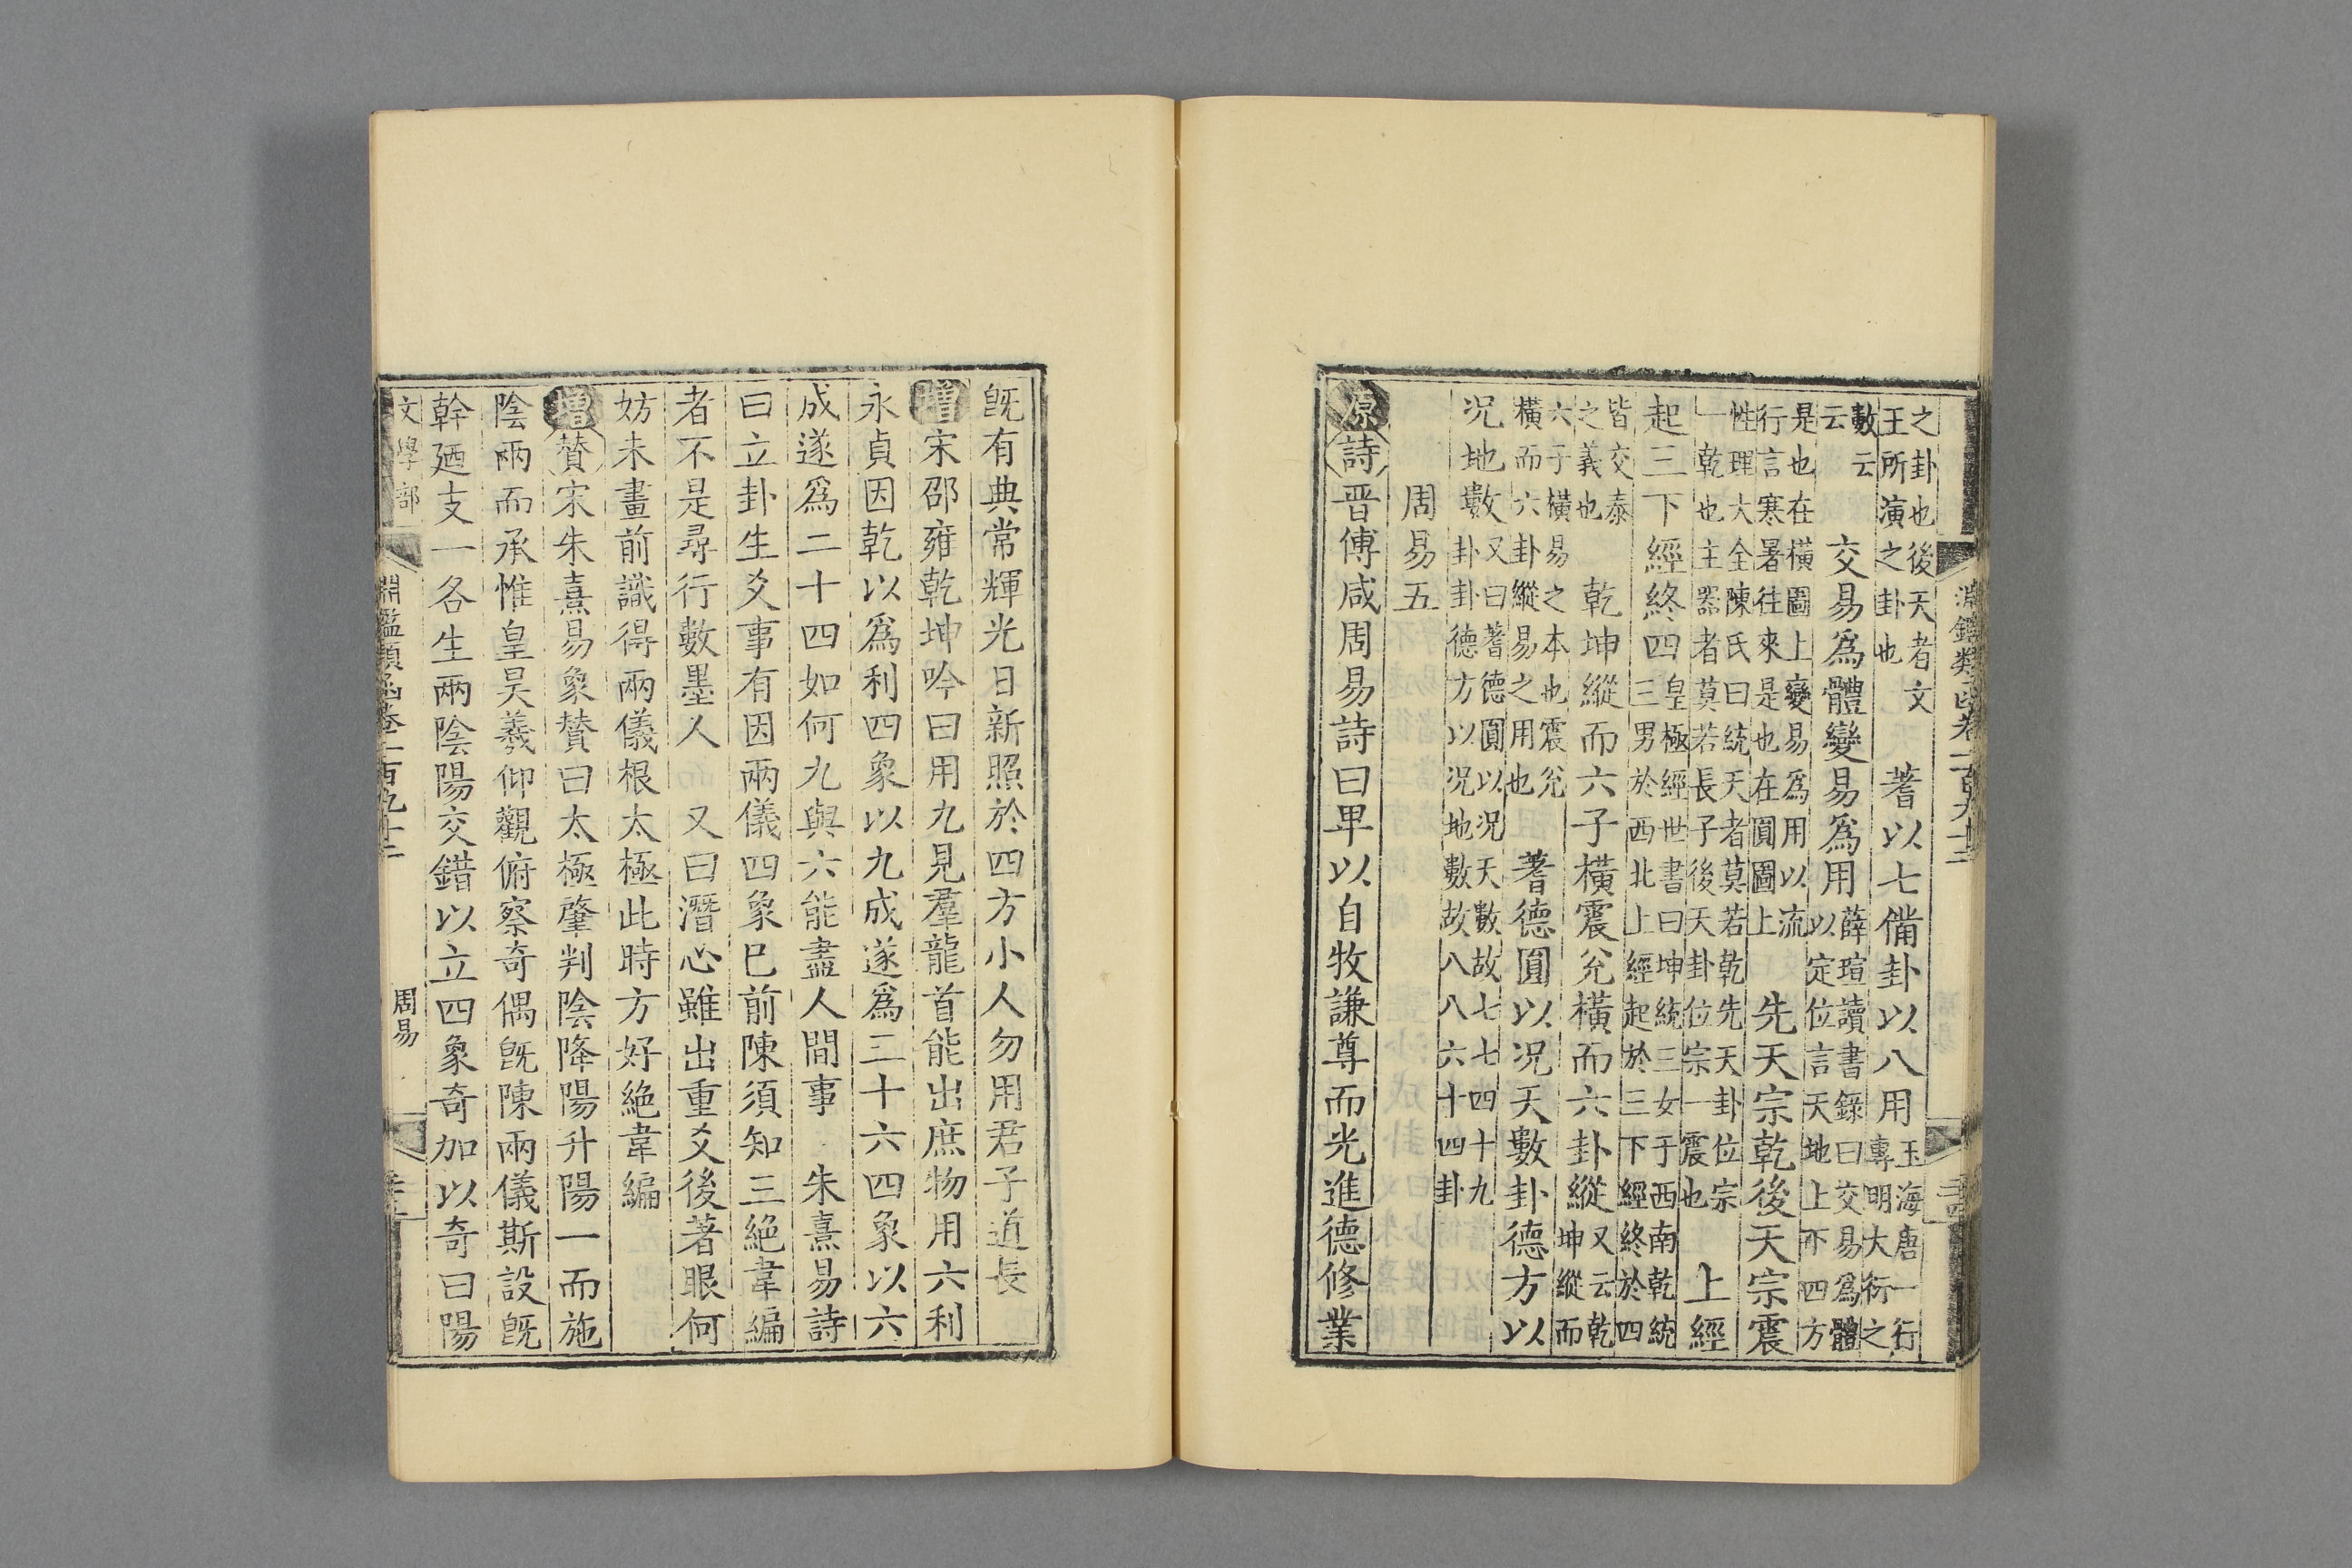 淵鑑類函卷一百九十二
之卦也後天者文王所演之卦也 蓍以七備卦以八用玉海唐一行專明大衍之
數云云 交易爲體變易爲用薛瑄讀書錄曰交易爲體以定位言天地上下四方
是也在橫圖上變易爲用以流行言寒暑往來是也在圓圖上 先天宗乾後天宗震
性理大全陳氏曰統天者莫若乾先天卦位宗一乾也主器者莫若長子後天卦位宗一震也 上經
起三下經終四皇極經世書曰坤統三女于西南乾統三男於西北上經起於三下經終於四
皆交泰之義也 乾坤縱而六子橫震兌橫而六卦縱又云乾坤縱而
六子橫易之本也震兌橫而六卦縱易之用也 蓍德圓以况天數卦德方以
况地數又曰蓍德圓以况天數故七七四十九卦德方以况地數故八八六十四卦
周易五
原詩晋傅咸周易詩曰卑以自牧謙尊而光進德修業
旣有典常輝光日新照於四方小人勿用君子道長
增宋邵雍乾坤吟曰用九見羣龍首能出庶物用六利
永貞因乾以爲利四象以九成遂爲三十六四象以六
成遂爲二十四如何九與六能盡人間事 朱熹易詩
曰立卦生爻事有因兩儀四象已前陳須知三絕韋編
者不是尋行數墨人 又曰潛心雖出重爻後著眼何
妨未畫前識得兩儀根太極此時方好絶韋編
增贊宋朱熹易象贊曰太極肇判陰降陽升陽一而施
陰兩而承惟皇昊羲仰觀俯察奇偶旣陳兩儀斯設旣
幹廼支一各生兩陰陽交錯以立四象奇加以奇曰陽
文學部 淵鑑類函卷一百九十二 周易